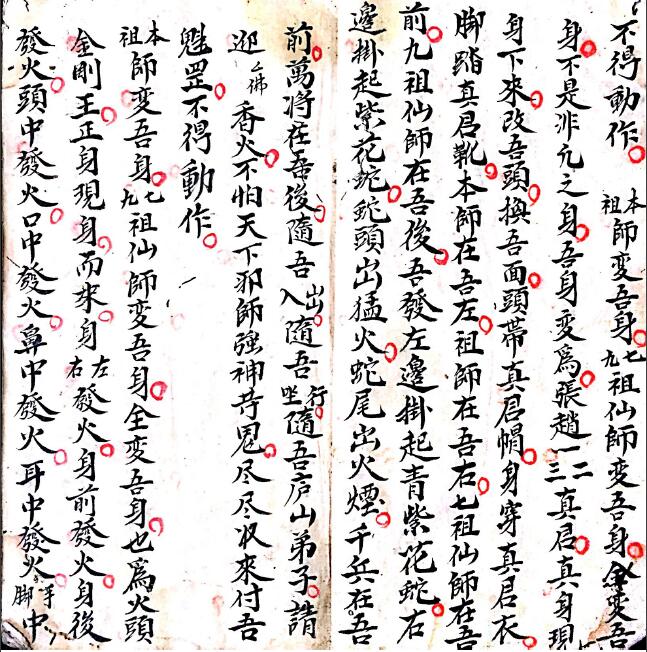 不得動作本祖師變吾身七九祖仙師變吾身全變吾
身不是非凡之身吾身变為張趙一二三真君真身現
身下來改吾頭換吾面頭带真君帽身穿真君衣
脚踏真君靴本師在吾左祖師在吾右七祖仙師在吾
前九祖仙師在吾後吾發左邊掛起青紫花蛇右
邊掛起紫花蛇蛇頭出猛火蛇尾出火煙千兵在吾
前萬将在吾後隨吾出入隨吾行坐隨吾庐山弟子請
香火不怕天下邪師強神苦鬼尽尽收來付吾
魁罡不得動作
本祖師變吾身七九祖仙師變吾身全變吾身也為火頭
金剛王正身現身而來身左右發火身前發火身後
發火頭中發火口中發火鼻中發火耳中發火手脚中